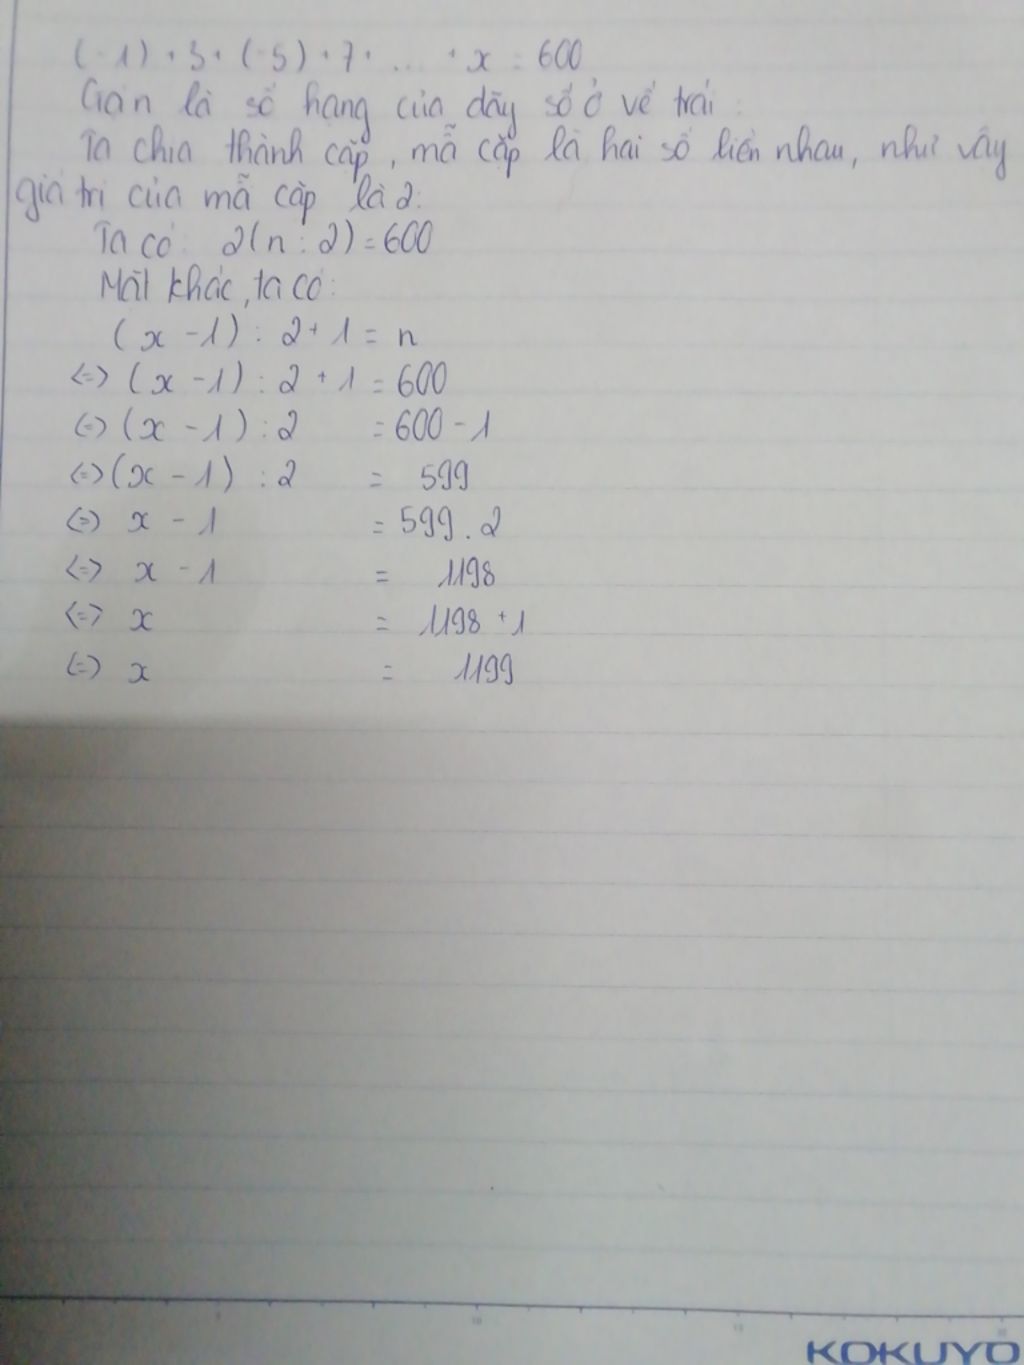 (-1) + 3 + (-5) + 7 + ... + x = 600
Gọi n là số hạng của dãy số ở vế trái:
Ta chia thành cặp, mỗ cặp là hai số liền nhau, như vậy
giá trị của mỗ cặp là 2:
Ta có: 2(n : 2) = 600
Mặt khác, ta có:
(x - 1) : 2 + 1 = n
<=> (x - 1) : 2 + 1 = 600
<=> (x - 1) : 2 = 600 - 1
<=> (x - 1) : 2 = 599
<=> x - 1 = 599 . 2
<=> x - 1 = 1198
<=> x = 1198 + 1
<=> x = 1199
5 10 15 20
KOKUYO